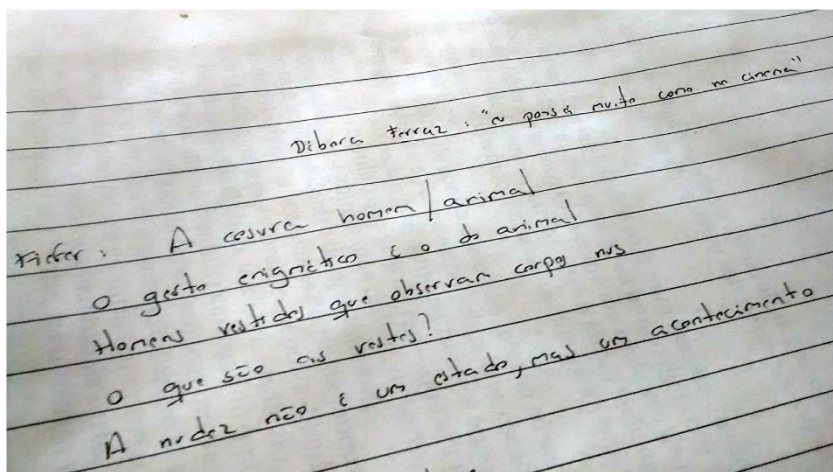 Débora Ferraz: "eu penso muito como no cinema"
: A cesura homem/animal
O gesto enigmático é o do animal
Homens vestidos que observam corpos nus
O que são as vestes?
A nudez não é um estado, mas um acontecimento